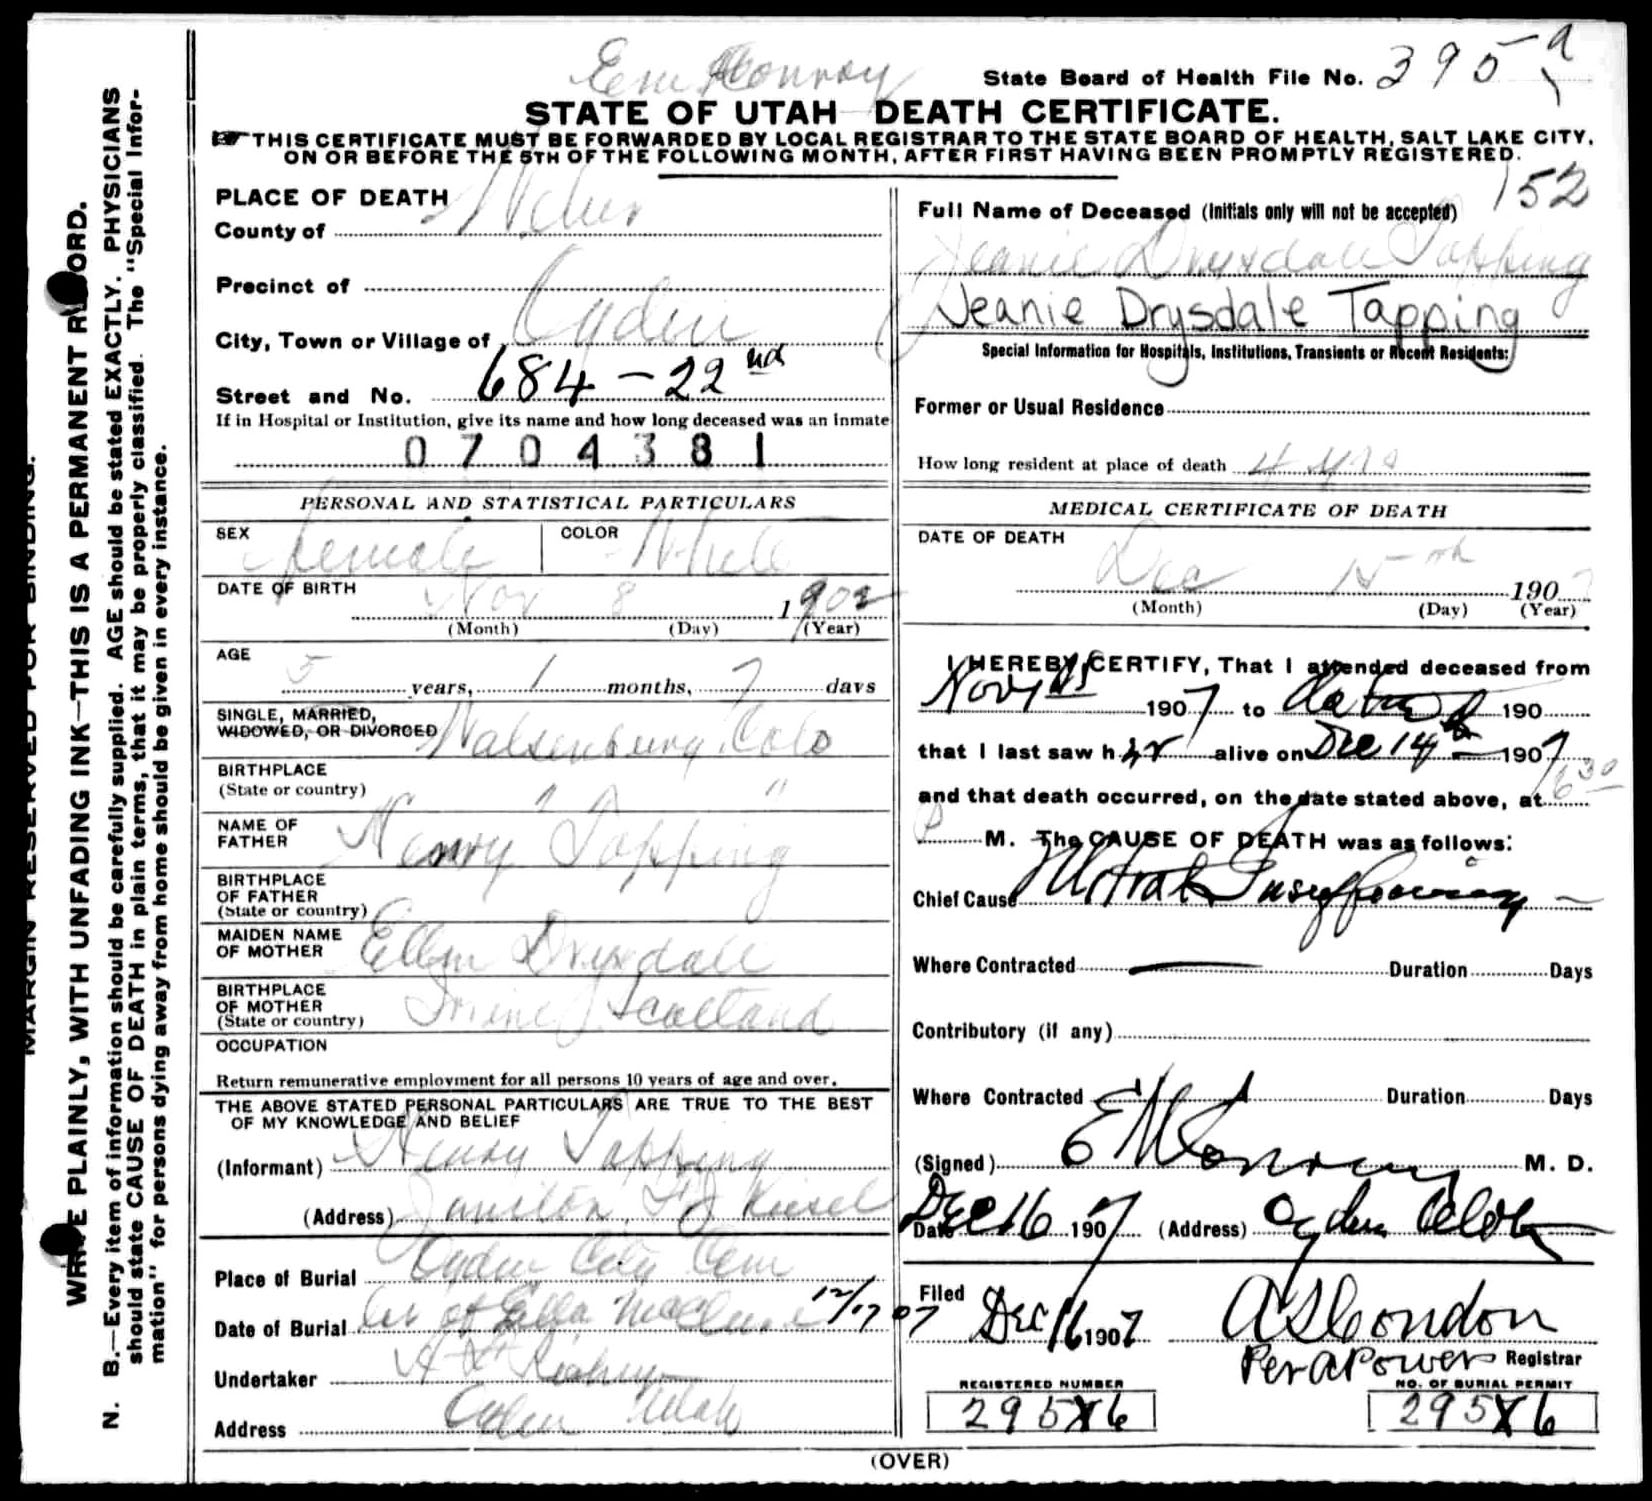 E M Conroy
State Board of Health File No. 395 a
STATE OF UTAH DEATH CERTIFICATE.
THIS CERTIFICATE MUST BE FORWARDED BY LOCAL REGISTRAR TO THE STATE BOARD OF HEALTH, SALT LAKE CITY,
ON OR BEFORE THE 5TH OF THE FOLLOWING MONTH, AFTER FIRST HAVING BEEN PROMPTLY REGISTERED.
MARGIN RESERVED FOR BINDING.
WRITE PLAINLY, WITH UNFADING INK—THIS IS A PERMANENT RECORD.
N. B.—Every item of information should be carefully supplied. AGE should be stated EXACTLY. PHYSICIANS
should state CAUSE OF DEATH in plain terms, that it may be properly classified. The "Special Infor-
mation" for persons dying away from home should be given in every instance.
PLACE OF DEATH
County of Weber
Precinct of
City, Town or Village of Ogden
Street and No. 684 - 22nd
If in Hospital or Institution, give its name and how long deceased was an inmate
0704381
PERSONAL AND STATISTICAL PARTICULARS
SEX Female COLOR White
DATE OF BIRTH Nov 8 1902
(Month) (Day) (Year)
AGE 5 years, 1 months, 7 days
SINGLE, MARRIED,
WIDOWED, OR DIVORCED Walsenburg, Colo
BIRTHPLACE
(State or country) " "
NAME OF
FATHER Henry Tapping
BIRTHPLACE
OF FATHER
(State or country)
MAIDEN NAME
OF MOTHER Ellen Drysdale
BIRTHPLACE
OF MOTHER
(State or country) Scotland
OCCUPATION
Return remunerative employment for all persons 10 years of age and over.
THE ABOVE STATED PERSONAL PARTICULARS ARE TRUE TO THE BEST
OF MY KNOWLEDGE AND BELIEF
(Informant) Henry Tapping
(Address) Kiesel
Place of Burial Ogden City Cem
Date of Burial 12/17 07
Undertaker
Address Ogden Utah
152
Full Name of Deceased (Initials only will not be accepted)
Jeanie Drysdale Tapping
Jeanie Drysdale Tapping
Special Information for Hospitals, Institutions, Transients or Recent Residents:
Former or Usual Residence
How long resident at place of death 4 yrs
MEDICAL CERTIFICATE OF DEATH
DATE OF DEATH
Dec 15th 1907
(Month) (Day) (Year)
I HEREBY CERTIFY, That I attended deceased from
Nov 1907 to 190
that I last saw her alive on Dec 14th 1907
and that death occurred, on the date stated above, at 6 30
P M. The CAUSE OF DEATH was as follows:
Chief Cause Mitral Insufficiency
Where Contracted Duration Days
Contributory (if any)
Where Contracted Duration Days
(Signed) E M Conroy M. D.
Date Dec 16 1907 (Address) Ogden
Filed
Dec 16 1907 A S Condon
Per A Power Registrar
REGISTERED NUMBER NO. OF BURIAL PERMIT
295X6 295X6
(OVER)